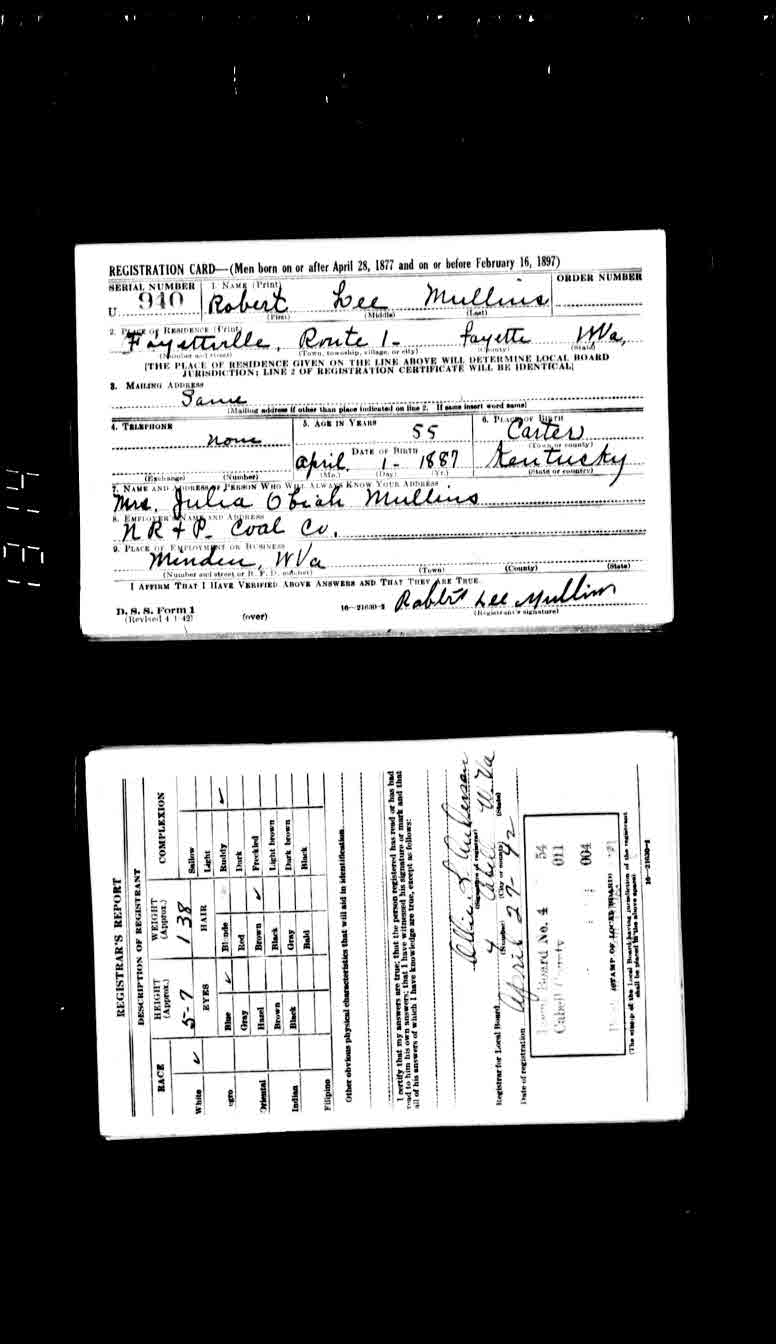 REGISTRATION CARD—(Men born on or after April 28, 1877 and on or before February 16, 1897)
SERIAL NUMBER 1. NAME (Print) ORDER NUMBER
U 940 Robert Lee Mullins
(First) (Middle) (Last)
2. PLACE OF RESIDENCE (Print)
Fayettville, Route 1- Fayette WVa,
(Number and street) (Town, township, village, or city) (County) (State)
[THE PLACE OF RESIDENCE GIVEN ON THE LINE ABOVE WILL DETERMINE LOCAL BOARD
JURISDICTION; LINE 2 OF REGISTRATION CERTIFICATE WILL BE IDENTICAL]
3. MAILING ADDRESS
Same
[Mailing address if other than place indicated on line 2. If same insert word same]
4. TELEPHONE 5. AGE IN YEARS 6. PLACE OF BIRTH
none 55 Carter
(Town or county)
DATE OF BIRTH
April 1- 1887 Kentucky
(Exchange) (Number) (Mo.) (Day) (Yr.) (State or country)
7. NAME AND ADDRESS OF PERSON WHO WILL ALWAYS KNOW YOUR ADDRESS
Mrs. Julia Obiah Mullins
8. EMPLOYER'S NAME AND ADDRESS
N R & P. Coal Co.
9. PLACE OF EMPLOYMENT OR BUSINESS
Minden, WVa
(Number and street or R. F. D. number) (Town) (County) (State)
I AFFIRM THAT I HAVE VERIFIED ABOVE ANSWERS AND THAT THEY ARE TRUE.
D. S. S. Form 1 16—21630-2 Robert Lee Mullins
(Revised 4-1-42) (over) (Registrant's signature)
REGISTRAR'S REPORT
DESCRIPTION OF REGISTRANT
RACE HEIGHT (Approx.) WEIGHT (Approx.) COMPLEXION
5-7 138
White ✓ EYES HAIR Sallow
Light
egro Blue ✓ Blonde Ruddy ✓
Gray Red Dark
Oriental Hazel Brown ✓ Freckled
Brown Black Light brown
Indian Black Gray Dark brown
Bald Black
Filipino
Other obvious physical characteristics that will aid in identification
I certify that my answers are true; that the person registered has read or has had
read to him his own answers; that I have witnessed his signature or mark and that
all of his answers of which I have knowledge are true, except as follows:
Anderson
Registrar for Local Board 4 Cabell W.Va
(Number) (City or county) (State)
Date of registration April 27-42
Board No. 4 54
Cabell County 011
004
(STAMP OF LOCAL BOARD)
(The stamp of the Local Board having jurisdiction of the registrant
shall be placed in the above space)
16—21630-2